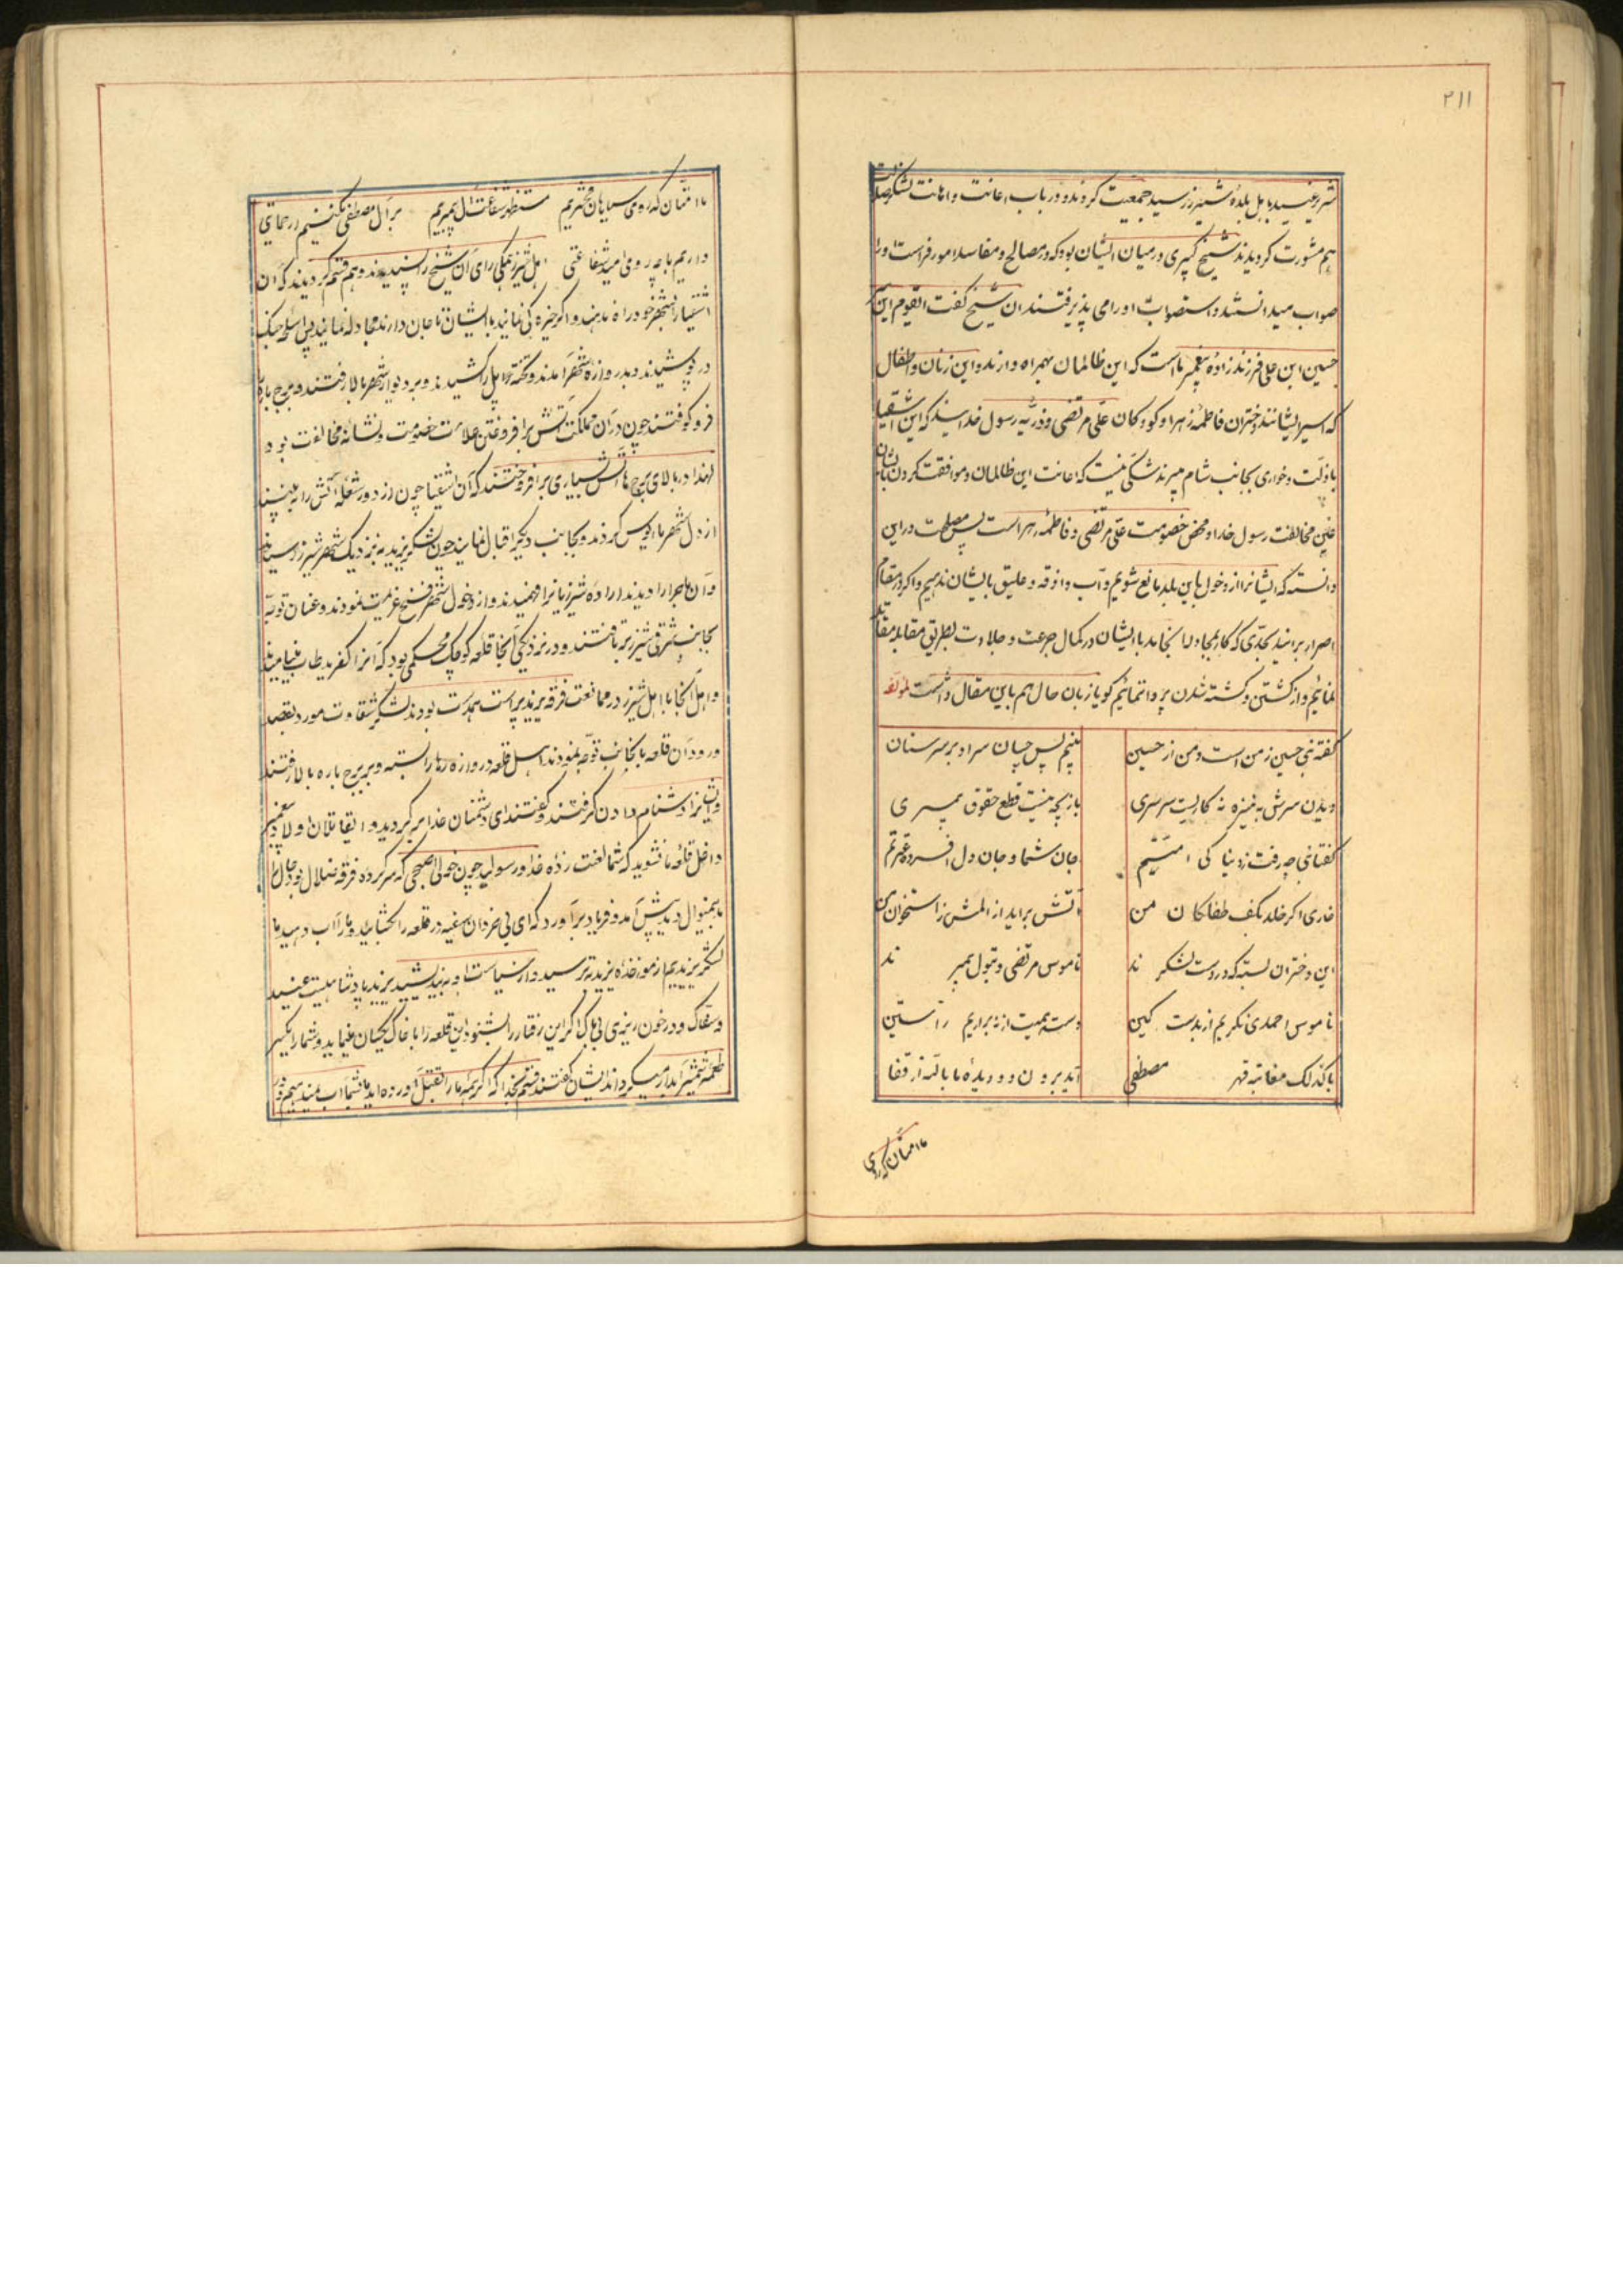 ۲۱۱
شرر عنید باهل بلده شیزر رسید جمعیت کردند و در باب اعانت و اهانت لشکر ضلالت
بهم مشورت کردیدند شیخ کبیری در میان ایشان بود که در مصالح و مفاسد امور فراست او را
صواب میدانستند و استصواب او را می پذیرفتند ان شیخ کفت ایقوم این
حسین ابن علی فرزند زاده پیغمبر ما است که این ظالمان بهمراه دارند و این زنان و اطفال
که اسیر ایشانند دختران فاطمه زهرا و کودکان علی مرتضی و ذریه رسول خدایند که این اشقیا
با ذلت و خواری بجانب شام میبرند شکی نیست که اعانت این ظالمان و موافقت کردن بایشان
عین مخالفت رسول خدا و محض خصومت علی مرتضی و فاطمه زهراست پس مصلحت در این
دانسته که ایشانرا از دخول باین بلد مانع شویم و آب و اذقه و علیق بایشان ندهیم و اکر در مقام
اصرار برایند بحدی که کار بمجادله انجامد با ایشان در کمال جرعت و جلادت بطریق مقابله مقاتله
نمائیم و از کشتن و کشته شدن پروا ننمائیم کویا زبان حال هم باین مقال داشت لمؤلفه
کفته نبی حسین ز من است و من از حسین بینیم پس چسان سر او بر سر سنان
دیدن سرش به نیزه نه کاریست سرسری بازیچه نیست قطع حقوق پیمبری
کفتا نبی چه رفت ز دنیا کی امتیم جان شما و جان دل افسرده عترتم
خاری اکر خلد بکف طفلکان من آتش براید از المش ز استخوان من
این دختران بسته که در دست لشکرند ناموس مرتضی و بتول پیمبرند
ناموس احمدی نکریم از بدست کین دست حمیت ار نه براریم راستین
با کذلک معاتبه قهر مصطفی آید برون دو دیده ما بالنه از قفا
ما امتان که روی
ما امتان که روی سیاهان محشریم مستظهر شفاعت آل پیمبریم بر آل مصطفی نکنیم ار حمایتی
داریم با چه روی امید شفاعتی اهل شیزر همکی رای آن شیخ را پسندیدند و هم قسم کردیدند که آن
اشقیا را بشهر خود راه ندهند و اکر خیره کی نمایند با ایشان تا جان دارند مجادله نمایند پس اسلحه جنک
در پوشیدند و بدروازه شهر آمدند و تخته پل را کشیدند و بر دیوار شهر بالا رفتند و برج باره
فرو کوفتند چون در آن مملکت آتش برافروختن علامت خصومت و نشانه مخالفت بود
لهذا در بالای برج ها آتش بسیاری برافروختند که آن اشقیا چون از دور شعله آتش را به بینند
از دخول شهر مایوس کردند و بجانب دیکر اقبال نمایند چون لشکر یزید به نزدیک شهر شیزر رسیدند
و آن ماجرا را دیدند اراده شیزریانرا فهمیدند و از دخول شهر فسخ عزیمت نمودند و عنان توجه
بجانب شرقی شیزر تافتند و در نزدیکی آنجا قلعه کوچک محکمی بود که آنرا کفرید طاب مینامیدند
و اهل آنجا با اهل شیزر در ممانعت فرقه یزید پرست همدست بودند لشکر شقاوت مورد بقصد
ورود آن قلعه بآنجانب توجه نمودند اهل قلعه دروازه ها را بسته و بر برج باره بالا رفتند
و ایشانرا دشنام دادن کرفتند و کفتند ای دشمنان خدا برکردید و ایقاتلان اولاد پیغمبر
داخل قلعه ما نشوید که شما لعنت زده خدا و رسولید چون خولی اصبحی که سرکرده فرقه ضلال بود حال را
بدینمنوال دید پیش آمد و فریاد برآورد که ای بی خردان سفیه در قلعه را بکشائید و ما را آب دهید ما
لشکر یزیدیم از مواخذه یزید بترسید و از سیاست او به اندیشید یزید پادشاهیست عنید
و سفاک و در خون ریزی بی باک اکر این رفتار را بشنود این قلعه را با خاک یکسان مینماید و شما را یکسر
طعمه شمشیر آبدار میکرداند ایشان کفتند قسم بخدا که اکر همه ما را بقتل آورده اید ما بشما آب نمیدهیم و در